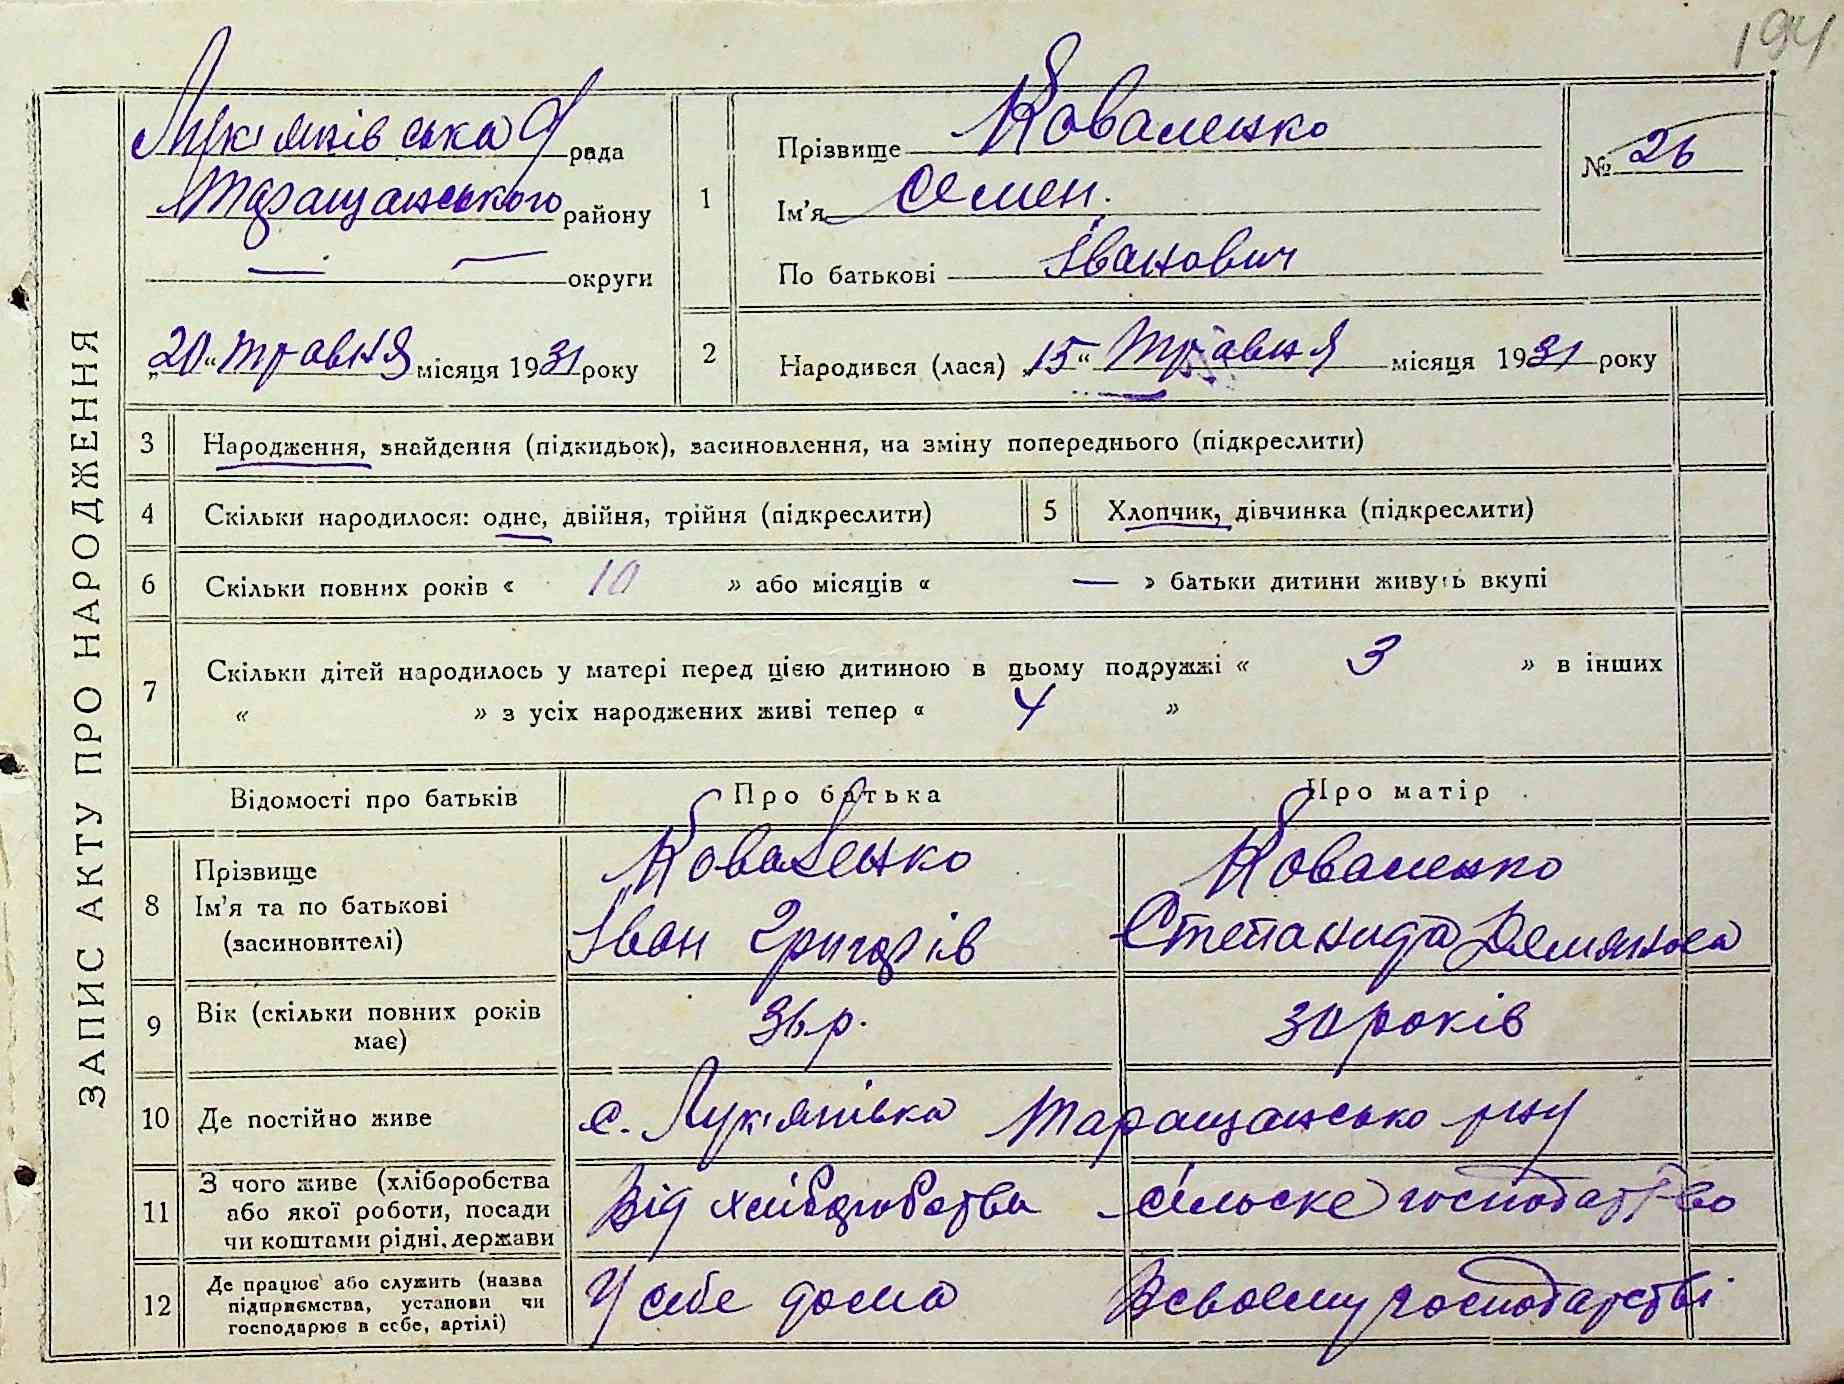 194
ЗАПИС АКТУ ПРО НАРОДЖЕННЯ
Лук'янівська рада
Таращанського району
— — округи
„20“ травня місяця 1931 року
1
Прізвище Коваленко
Ім'я Семен.
По батькові Іванович
№ 26
2
Народився (лася) „15“ Травня місяця 1931 року
3 Народження, знайдення (підкидьок), засиновлення, на зміну попереднього (підкреслити)
4 Скільки народилося: одне, двійня, трійня (підкреслити)
5 Хлопчик, дівчинка (підкреслити)
6 Скільки повних років « 10 » або місяців « — » батьки дитини живуть вкупі
7 Скільки дітей народилось у матері перед цією дитиною в цьому подружжі « 3 » в інших
« » з усіх народжених живі тепер « 4 »
Відомості про батьків Про батька Про матір
8 Прізвище
Ім'я та по батькові
(засиновителі)
Коваленко
Іван Григорів
Коваленко
Степанида Демянова
9 Вік (скільки повних років
має)
36 р.
30 років
10 Де постійно живе с. Лук'янівка Таращансько р-ну
11 З чого живе (хліборобства
або якої роботи, посади
чи коштами рідні, держави
Від хліборобства
сільске господатство
12 Де працює або служить (назва
підприємства, установи чи
господарює в себе, артілі)
У себе дома
В своєму господарстві